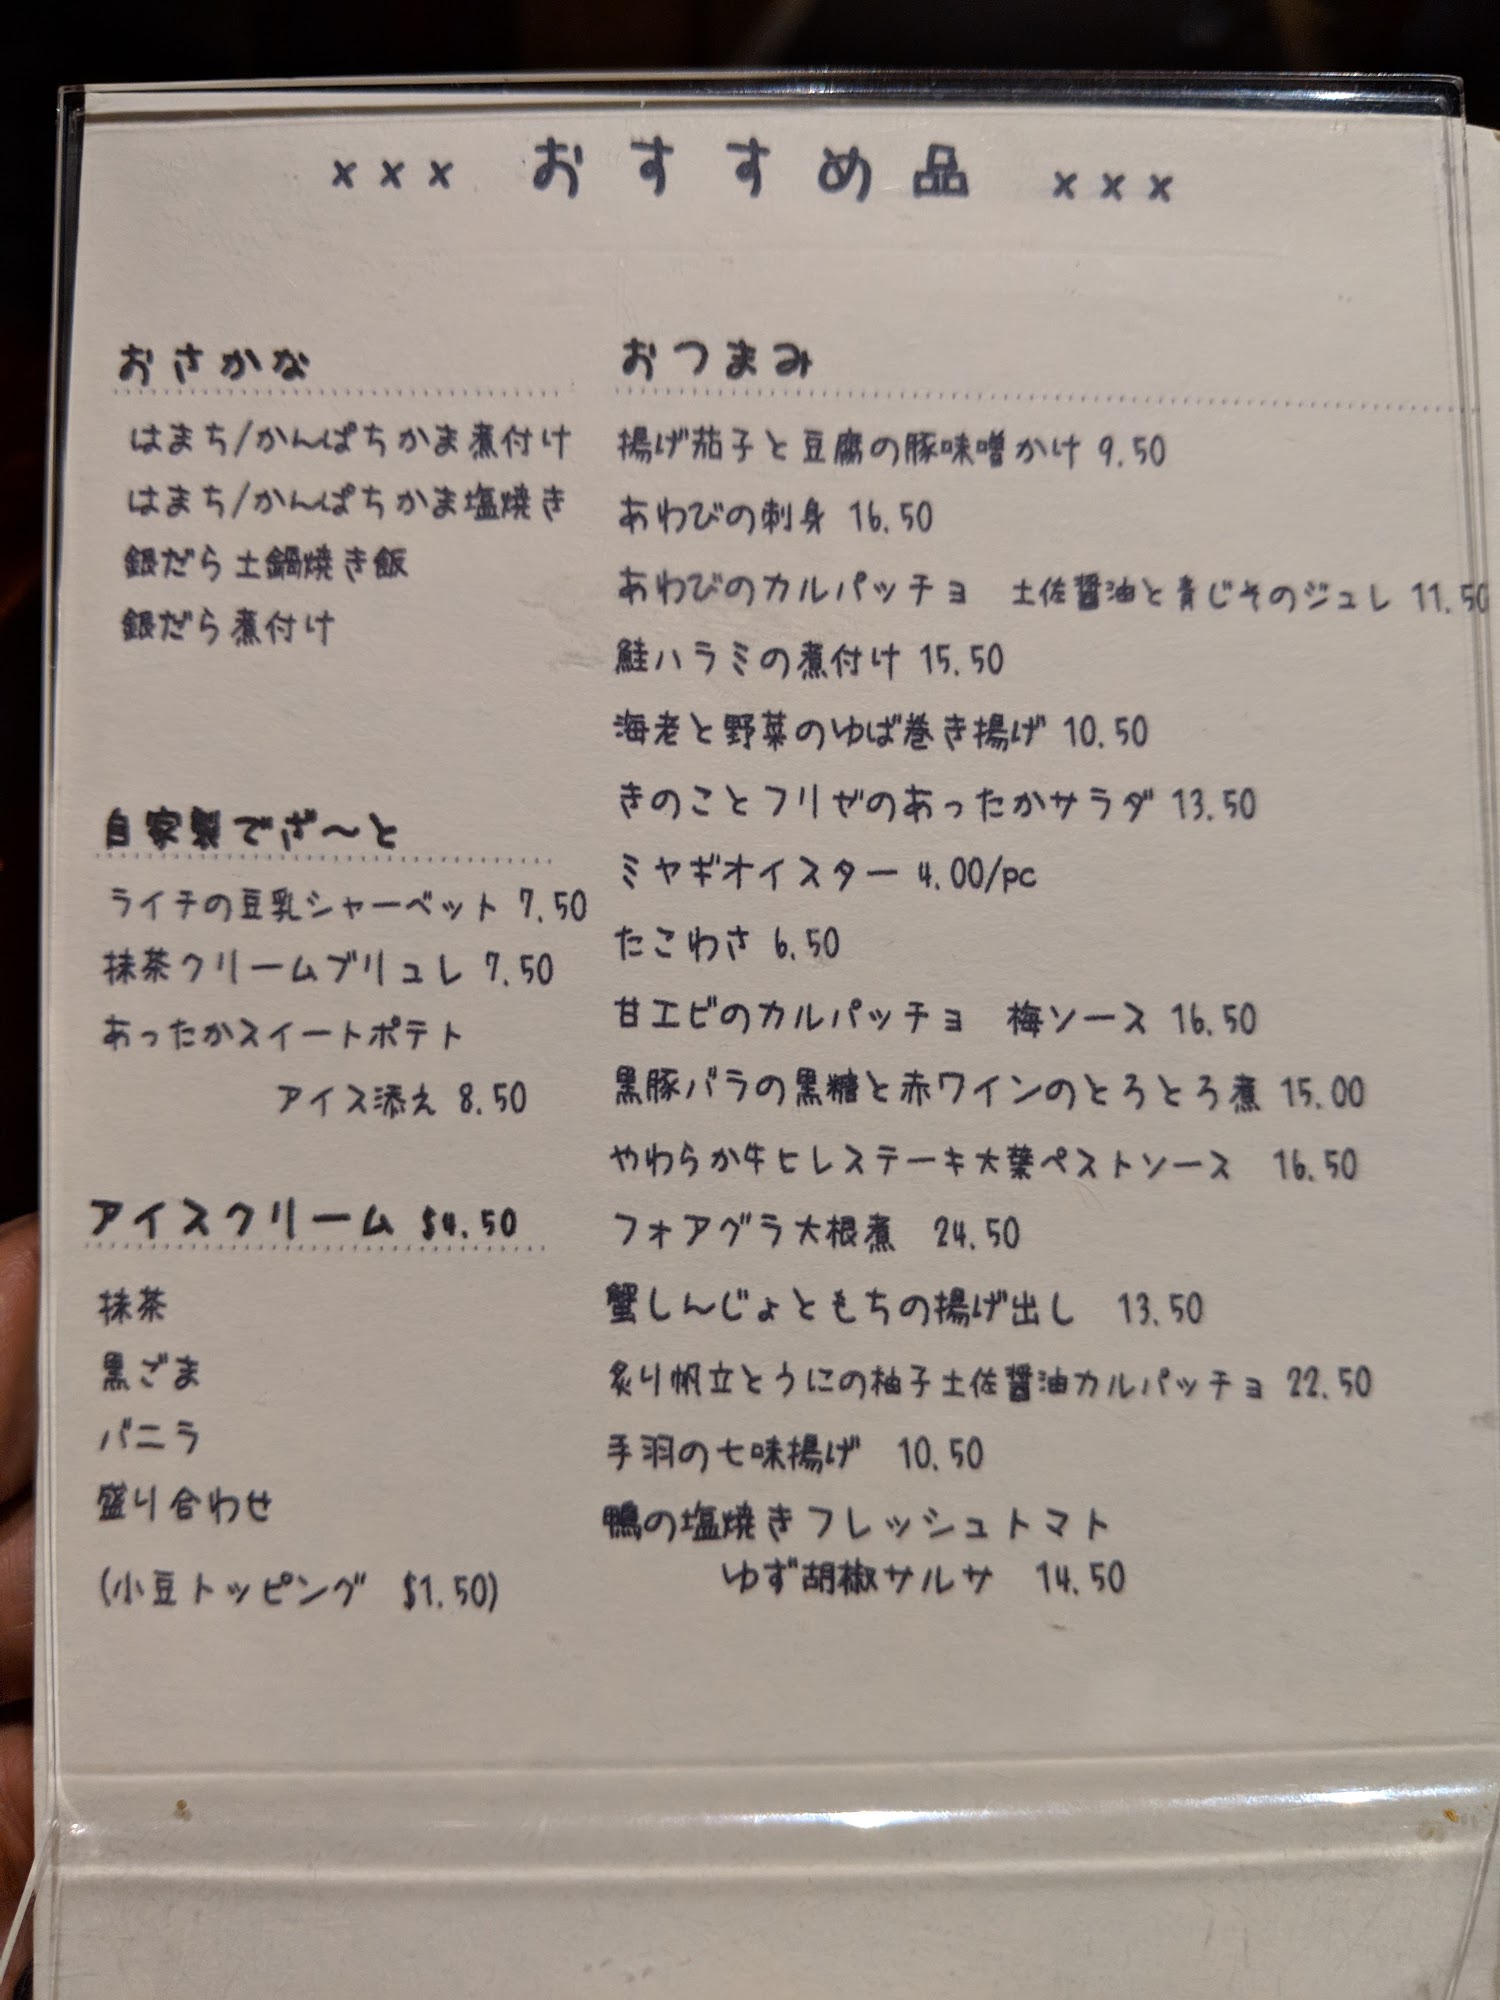 ××× おすすめ品 ×××
おさかな
はまち/かんぱちかま煮付け
はまち/かんぱちかま塩焼き
銀だら土鍋焼き飯
銀だら煮付け
自家製でざ〜と
ライチの豆乳シャーベット 7.50
抹茶クリームブリュレ 7.50
あったかスイートポテト
アイス添え 8.50
アイスクリーム $4.50
抹茶
黒ごま
バニラ
盛り合わせ
(小豆トッピング $1.50)
おつまみ
揚げ茄子と豆腐の豚味噌かけ 9.50
あわびの刺身 16.50
あわびのカルパッチョ 土佐醤油と青じそのジュレ 11.50
鮭ハラミの煮付け 15.50
海老と野菜のゆば巻き揚げ 10.50
きのことフリゼのあったかサラダ 13.50
ミヤギオイスター 4.00/pc
たこわさ 6.50
甘エビのカルパッチョ 梅ソース 16.50
黒豚バラの黒糖と赤ワインのとろとろ煮 15.00
やわらか牛ヒレステーキ大葉ペストソース 16.50
フォアグラ大根煮 24.50
蟹しんじょともちの揚げ出し 13.50
炙り帆立とうにの柚子土佐醤油カルパッチョ 22.50
手羽の七味揚げ 10.50
鴨の塩焼きフレッシュトマト
ゆず胡椒サルサ 14.50